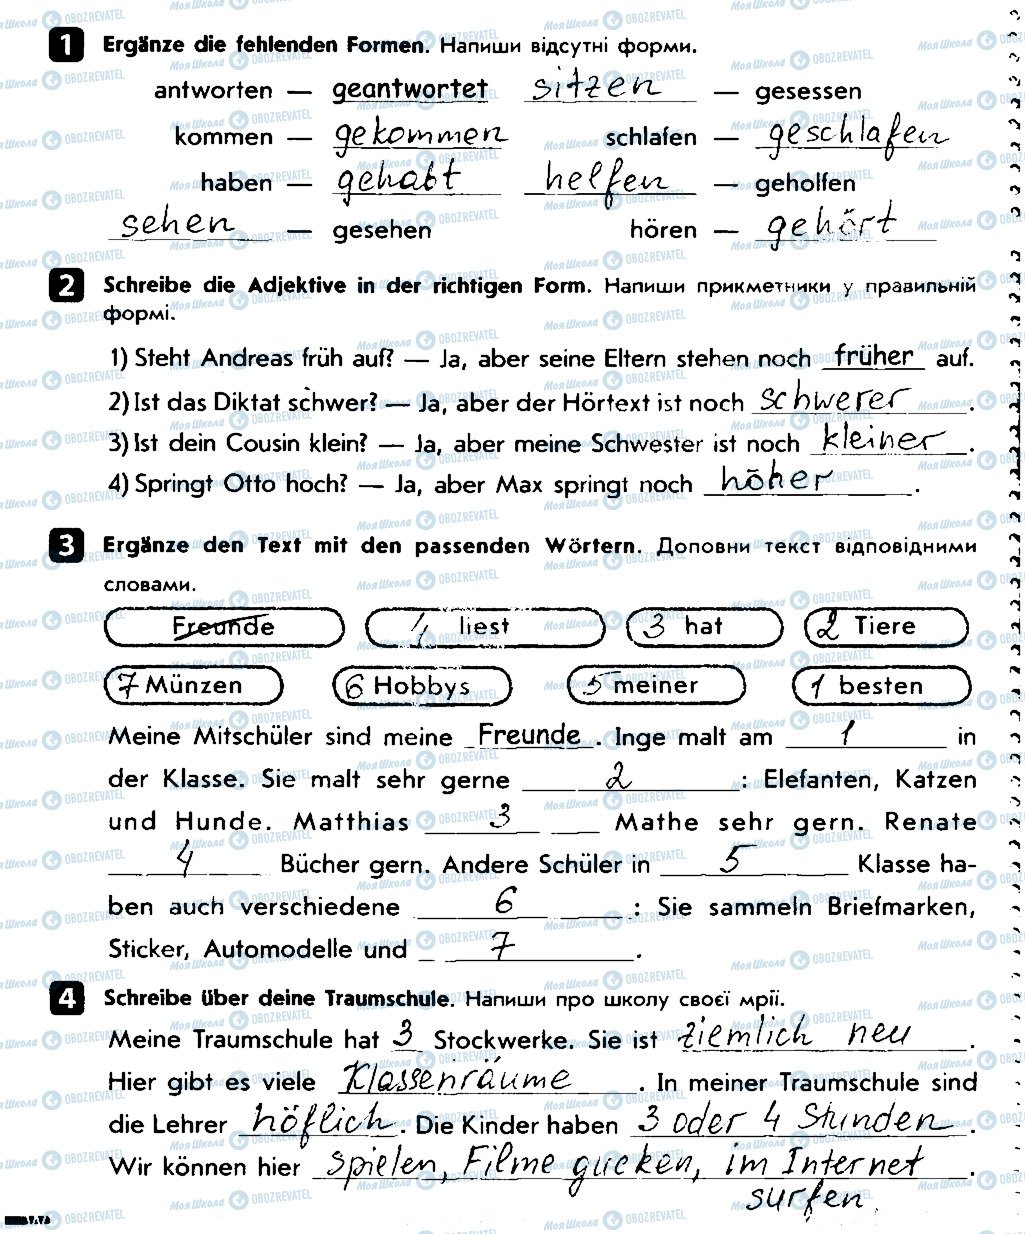 1 Ergänze die fehlenden Formen. Напиши відсутні форми.
antworten — geantwortet sitzen — gesessen
kommen — gekommen schlafen — geschlafen
haben — gehabt helfen — geholfen
sehen — gesehen hören — gehört
2 Schreibe die Adjektive in der richtigen Form. Напиши прикметники у правильній
формі.
1) Steht Andreas früh auf? — Ja, aber seine Eltern stehen noch früher auf.
2) Ist das Diktat schwer? — Ja, aber der Hörtext ist noch schwerer.
3) Ist dein Cousin klein? — Ja, aber meine Schwester ist noch kleiner.
4) Springt Otto hoch? — Ja, aber Max springt noch höher.
3 Ergänze den Text mit den passenden Wörtern. Доповни текст відповідними
словами.
Freunde 4 liest 3 hat 2 Tiere
7 Münzen 6 Hobbys 5 meiner 1 besten
Meine Mitschüler sind meine Freunde. Inge malt am 1 in
der Klasse. Sie malt sehr gerne 2: Elefanten, Katzen
und Hunde. Matthias 3 Mathe sehr gern. Renate
4 Bücher gern. Andere Schüler in 5 Klasse ha-
ben auch verschiedene 6: Sie sammeln Briefmarken,
Sticker, Automodelle und 7.
4 Schreibe über deine Traumschule. Напиши про школу своєї мрії.
Meine Traumschule hat 3 Stockwerke. Sie ist ziemlich neu.
Hier gibt es viele Klassenräume. In meiner Traumschule sind
die Lehrer höflich. Die Kinder haben 3 oder 4 Stunden.
Wir können hier spielen, Filme gucken, im Internet.
surfen